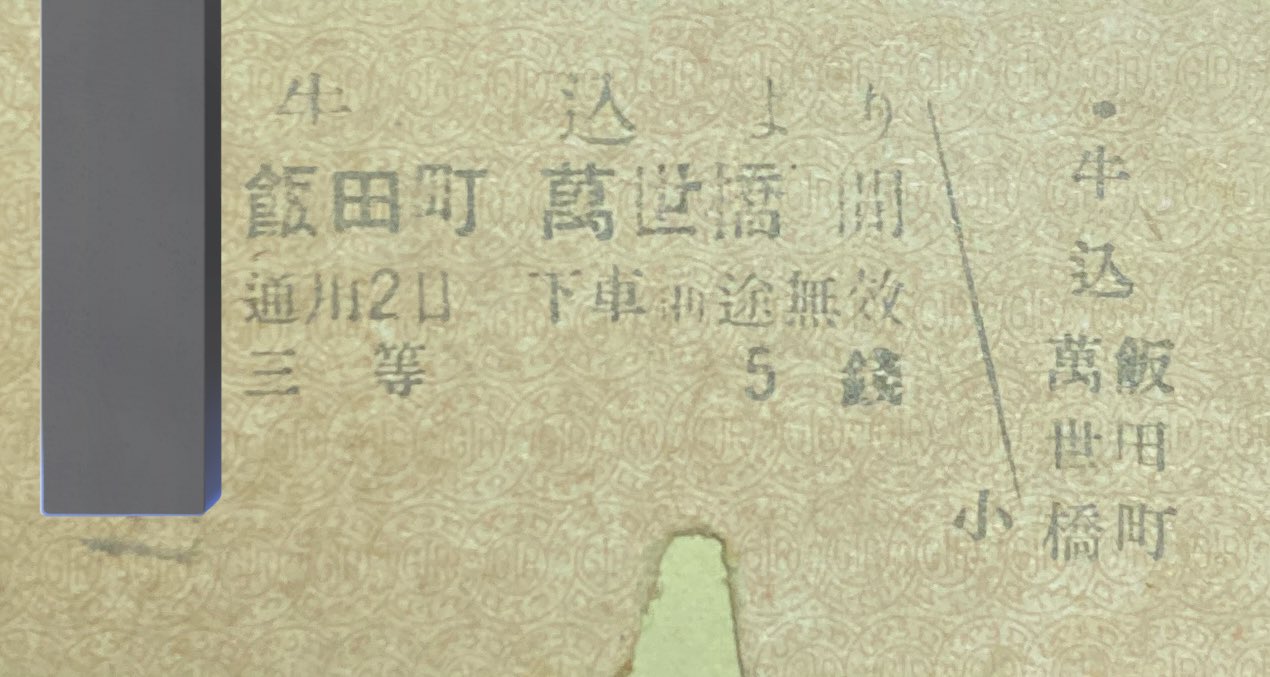 牛込より
飯田町 萬世橋 間
通用2日 下車前途無效
三等 5錢
・牛込
飯田町
萬世橋
小